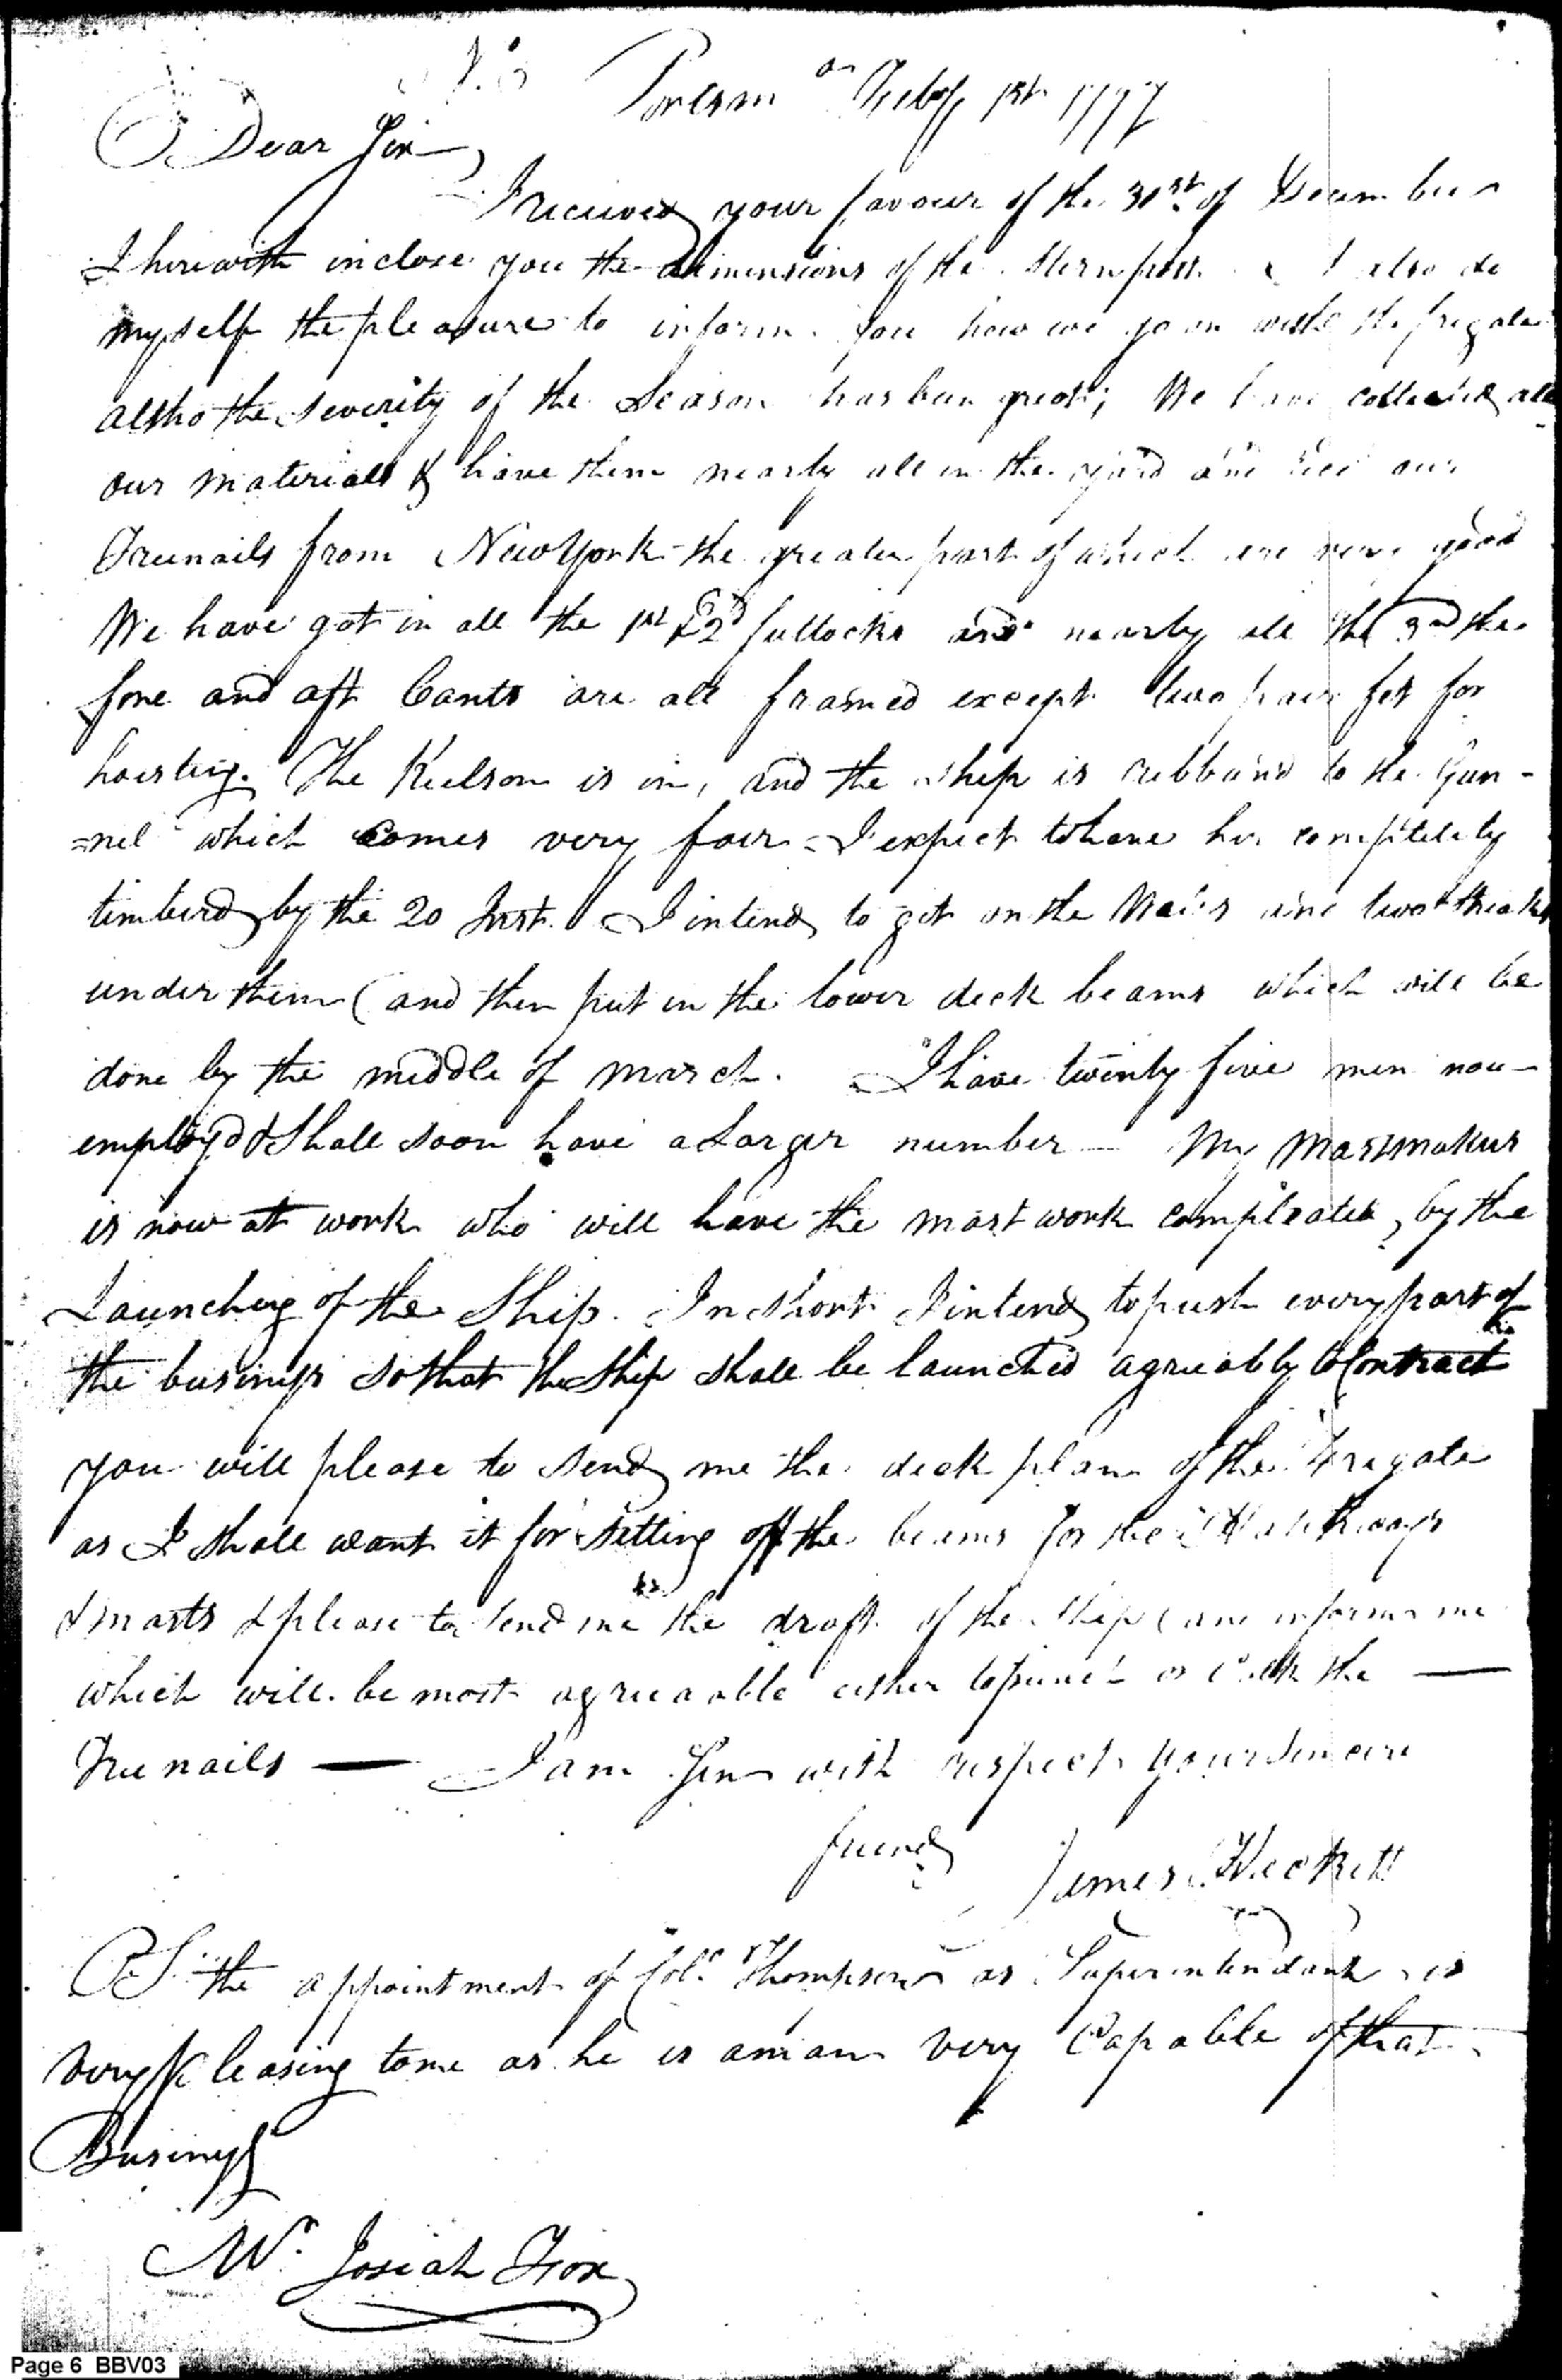 Portsmo Feby 1st 1797
Dear Sir
I received your favour of the 31st of December
I herewith inclose you the dimensions of the Stern post & I also do
myself the pleasure to inform you how we go on with the frigate
altho the severity of the Season has been great; We have collected all
our materials & have them nearly all in the yard our
Treenails from New York the greater part of which are very good
We have got in all the 1st & 2d futtocks and nearly all the 3rd the
fore and aft Cants are all framed except two pair fet for
hoisting. The Keelson is in, and the ship is ribband to the Gun-
=nel which comes very fair - I expect to have her completely
timberd by the 20 Inst. I intend to get on the Wales and two streaks
under them and then put in the lower deck beams which will be
done by the middle of march. I have twenty five men now
employd & Shall soon have a Larger number - My Mastmaker
is now at work who will have the mast work compleated, by the
Launching of the Ship. In short I intend to push every part of
the business so that the Ship shall be launched agreeably to Contract
you will please to send me the deck plan of the Fregate
as I shall want it for setting off the beams for the Hatchways
& masts & please to send me the draft of the Ship and inform me
which will be most agreeable either to or the
Treenails — I am Sir with respect your Sincere
friend James Hackett
PS. the appointment of Colo. Thompson as Superintendant is
very pleasing to me as he is a man very Capable of that
Business
Mr. Josiah Fox
Page 6 BBV03